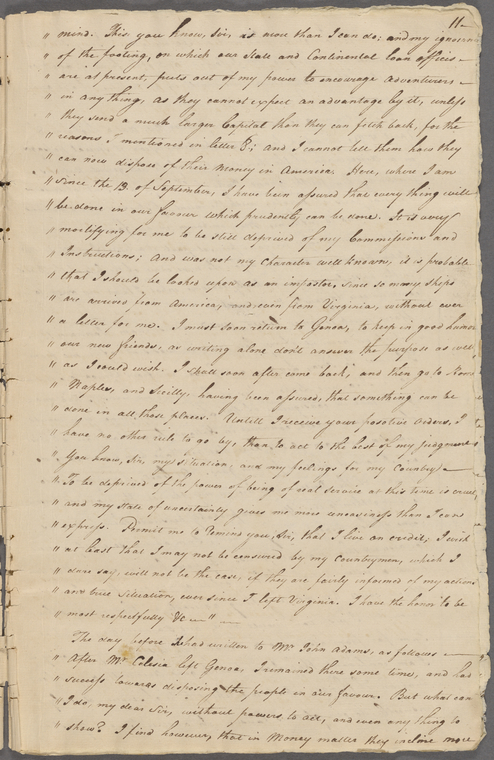 11
" mind. This, you know, Sir, is more than I can do; and my ignorance
" of the footing, on which our State and Continental loan offices
" are at present, puts out of my power to encourage adventurers
" in any thing, as they cannot expect an advantage by it, unless
" they send a much larger Capital than they can fetch back, for the
" reasons I mentioned in letter 8; and I cannot tell them how they
" can now dispose of their money in America. Here, where I am
" since the 13. of September, I have been assured that every thing will
" be done in our favour which prudently can be done. It is very
" mortifying for me to be still deprived of my Commissions and
" Instructions; and was not my character well known, it is probable
" that I should be looked upon as an impostor, since so many ships
" are arrived from America, and even from Virginia, without ever
" a letter for me. I must soon return to Genoa, to keep in good humor
" our new friends, as writing alone don't answer the purpose as well
" as I could wish. I shall soon after come back, and then go to Rome
" Naples, and Sicily, having been assured, that something can be
" done in all those places. Untill I receive your positive orders, I
" have no other rule to go by, than to act to the best of my Judgement
" You know, Sir, my situation, and my feelings for my Country.
" To be deprived of the power of being of real service at this time is cruel,
" and my state of uncertainty gives me more uneasiness than I can
" express. Permit me to remind you, Sir, that I live on credit, I wish
" at least that I may not be censured by my Countrymen, which I
" dare say, will not be the case, if they are fairly informed of my actions
" and true situation, ever since I left Virginia. I have the honor to be
" most respectfully &c "
The day before I had written to Mr. John Adams, as follows
" After Mr. Celesia left Genoa, I remained there some time, and had
" success towards disposing the people in our favour. But what can
" I do, my dear Sir, without powers to act, and even any thing to
" show? I find however, that in Money matter they incline more